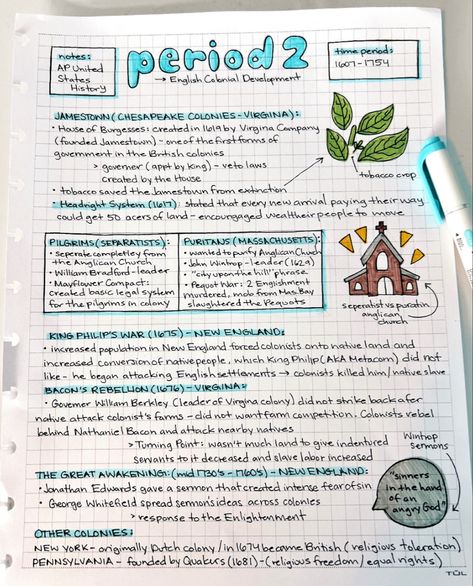 notes:
AP United
States
History
period 2
→ English Colonial Development
time period:
1607-1754
JAMESTOWN (CHESAPEAKE COLONIES - VIRGINIA):
• House of Burgesses: created in 1619 by Virginia Company
(founded Jamestown) - one of the first forms of
government in the British colonies
> governor (appt by king) - veto laws
created by the House
• tobacco saved the Jamestown from extinction
tobacco crop
• Headright System (1617): stated that every new arrival paying their way
could get 50 acers of land - encouraged wealthier people to move
PILGRIMS (SEPARATISTS):
• seperate completley from
the Anglican Church
• William Bradford - leader
• Mayflower Compact:
created basic legal system
for the pilgrims in colony
PURITANS (MASSACHUSETTS):
• wanted to purify Anglican Church
• John Wintrop - leader (1629)
• "city upon the hill" phrase
• Pequot War: 2 Englishment
murdered, mob from Mass. Bay
slaughtered the Pequots
seperatist vs puratin
anglican
church
KING PHILIP'S WAR (1675) - NEW ENGLAND:
• increased population in New England forced colonists onto native land and
increased conversion of native people, which King Philip (AKA Metacom) did not
like - he began attacking English settlements → colonists killed him / native slave
BACON'S REBELLION (1676) - VIRGINIA:
• Governer William Berkley (leader of Virginia colony) did not strike back after
native attack colonist's farms - did not want farm competition. Colonists rebel
behind Nathaniel Bacon and attack nearby natives
> Turning Point: wasn't much land to give indentured
servants to it decreased and slave labor increased
Wintrop
sermons
THE GREAT AWAKENING: (mid 1730's - 1760's) - NEW ENGLAND:
• Jonathan Edwards gave a sermon that created intense fear of sin
• George Whitefield spread semons ideas across colonies
> response to the Enlightenment
"sinners
in the hand
of an
angry God"
OTHER COLONIES:
NEW YORK - originally Dutch colony / in 1674 became British (religious toleration)
PENNSYLVANIA - founded by Quakers (1681) - (religious freedom / equal rights)
TUL